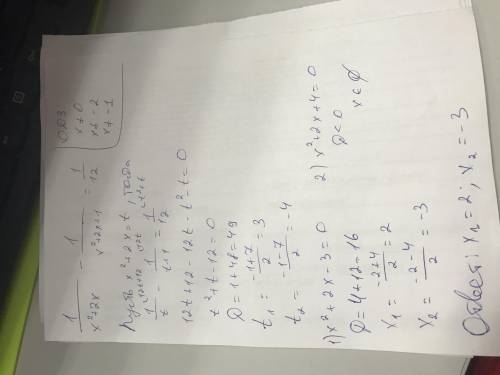 1/(x²+2x) - 1/(x²+2x+1) = 1/12
ОДЗ
x≠0
x≠-2
x≠-1
Пусть x²+2x=t, тогда
1/t - 1/(t+1) = 1/12
12t+12-12t-t²-t=0
t²+t-12=0
D=1+48=49
t₁=(-1+7)/2=3
t₂=(-1-7)/2=-4
1) x²+2x-3=0
D=4+12=16
x₁=(-2+4)/2=2
x₂=(-2-4)/2=-3
2) x²+2x+4=0
D<0
x∈∅
Ответ: x₁=2; x₂=-3